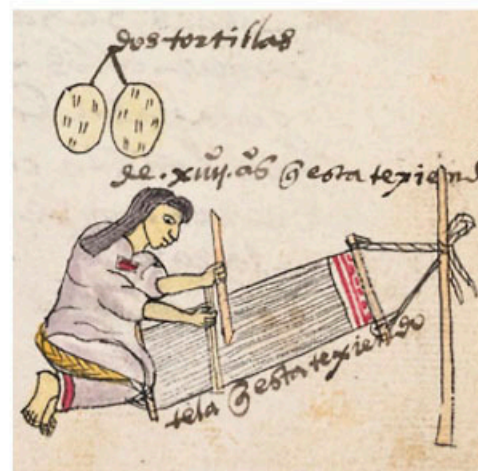 dos tortillas
de . xiiijº . aºs q̃ esta texiend
tela q̃ esta texiendo